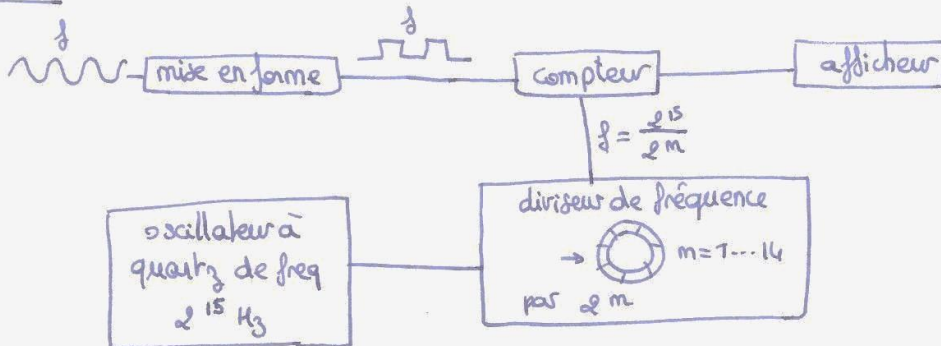 f
f
mise en forme
compteur
afficheur
f = 2^15 / 2^m
diviseur de fréquence
→ m=1...14
par 2^m
oscillateur à
quartz de freq
2^15 Hz